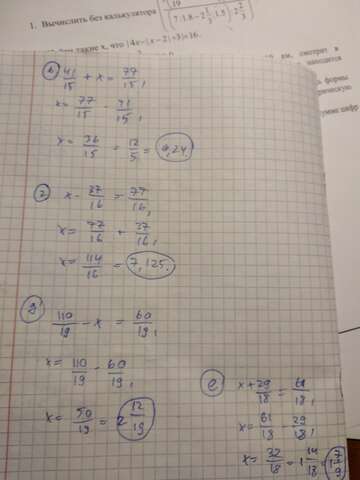 1. Вычислить без калькулятора
19
(7:1.8-2 1/3·1.5):2 2/3
такие x, что |4x-|x-2|+3|=16.
км, смотрит в
находится
формы
сумме цифр
в) 41/15 + x = 77/15,
x = 77/15 - 41/15,
x = 36/15 = 12/5 = 0,24.
г) x - 37/16 = 77/16,
x = 77/16 + 37/16,
x = 114/16 = 7,125.
д) 110/19 - x = 60/19,
x = 110/19 - 60/19,
x = 50/19 = 2 12/19
е) x + 29/18 = 61/18,
x = 61/18 - 29/18,
x = 32/18 = 1 14/18 = 1 7/9